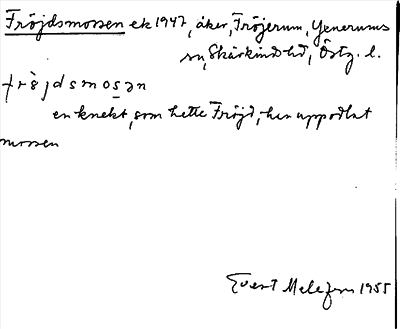 Fröjdsmossen ek 1947, åker, Fröjerum, Yxnerums
sn, Skärkinds hd, Östg. l.
frö̀jdsmos̲ən
en knekt, som hette Fröjd, han uppodlat
mossen
Evert Melefors 1955